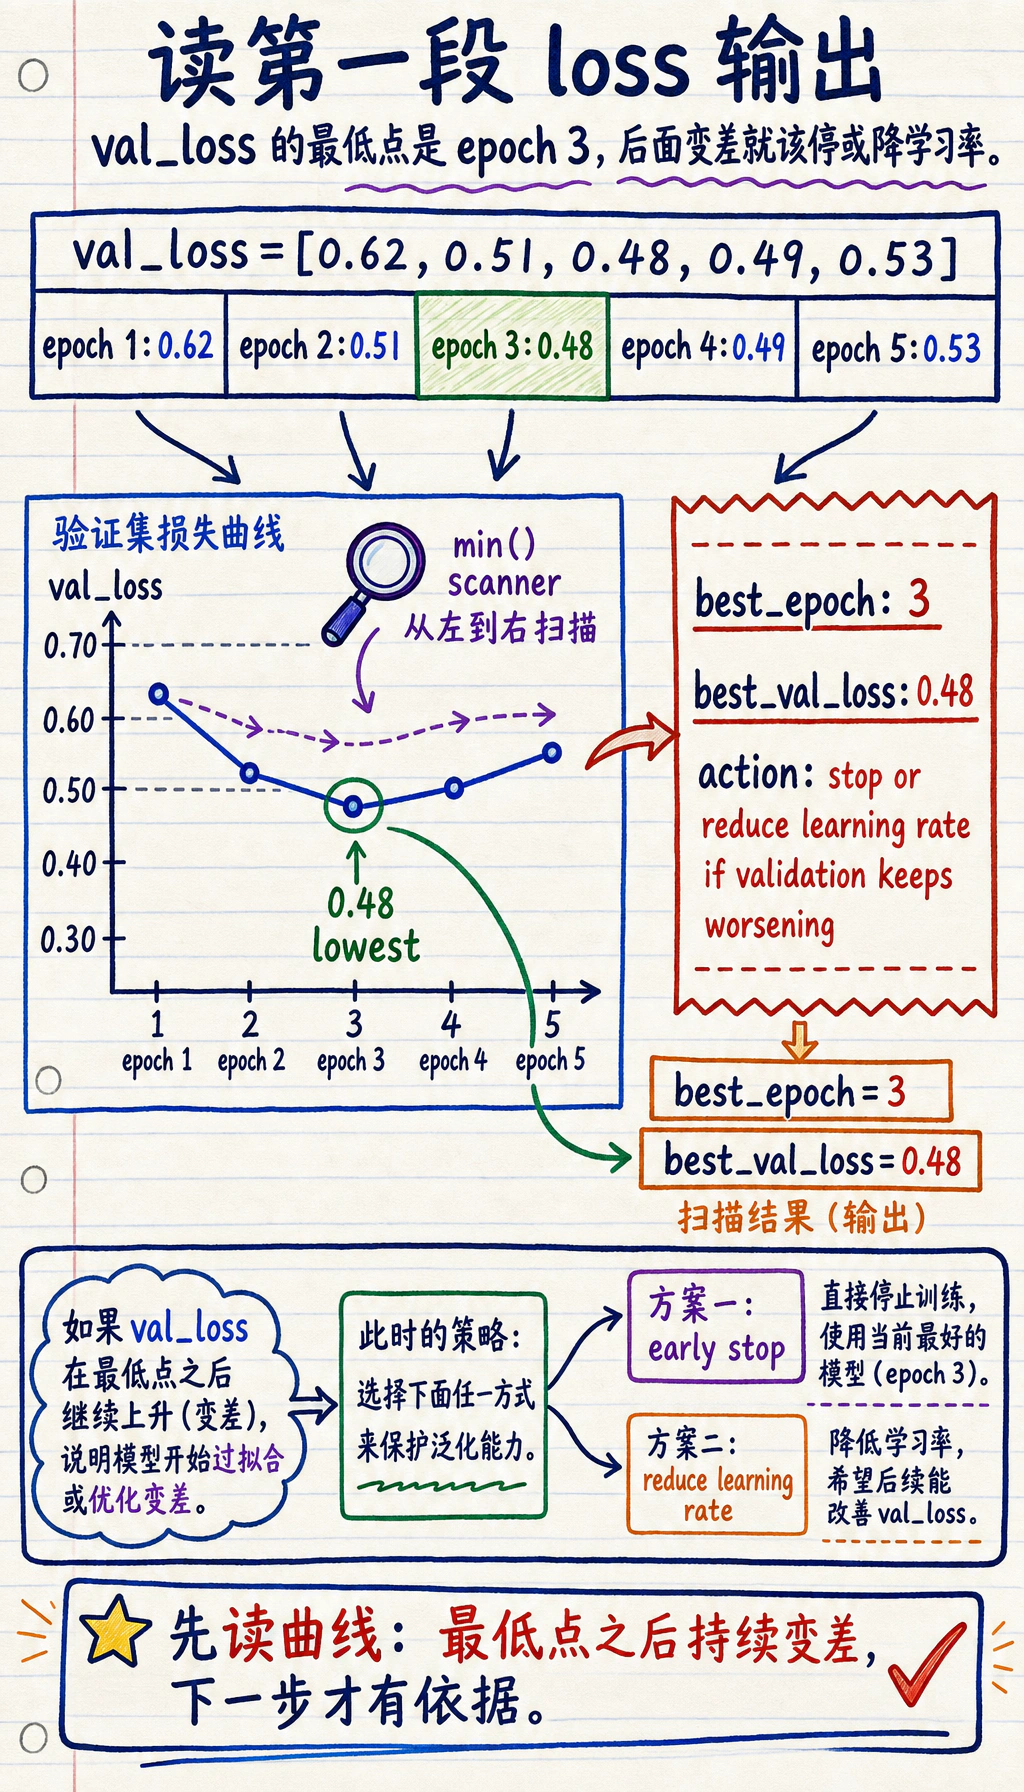 读第一段 loss 输出
val_loss 的最低点是 epoch 3, 后面变差就该停或降学习率。
val_loss = [0.62, 0.51, 0.48, 0.49, 0.53]
epoch 1: 0.62
epoch 2: 0.51
epoch 3: 0.48
epoch 4: 0.49
epoch 5: 0.53
验证集损失曲线
val_loss
min()
scanner
从左到右扫描
0.70
0.60
0.50
0.40
0.30
0.48
lowest
1
2
3
4
5
epoch 1
epoch 2
epoch 3
epoch 4
epoch 5
best_epoch: 3
best_val_loss: 0.48
action: stop or
reduce learning rate
if validation keeps
worsening
best_epoch = 3
best_val_loss = 0.48
扫描结果 (输出)
如果 val_loss
在最低点之后
继续上升 (变差),
说明模型开始过拟合
或优化变差。
此时的策略:
选择下面任一方式
来保护泛化能力。
方案一:
early stop
直接停止训练,
使用当前最好的
模型 (epoch 3)。
方案二:
reduce learning
rate
降低学习率,
希望后续能
改善 val_loss。
先读曲线: 最低点之后持续变差,
下一步才有依据。